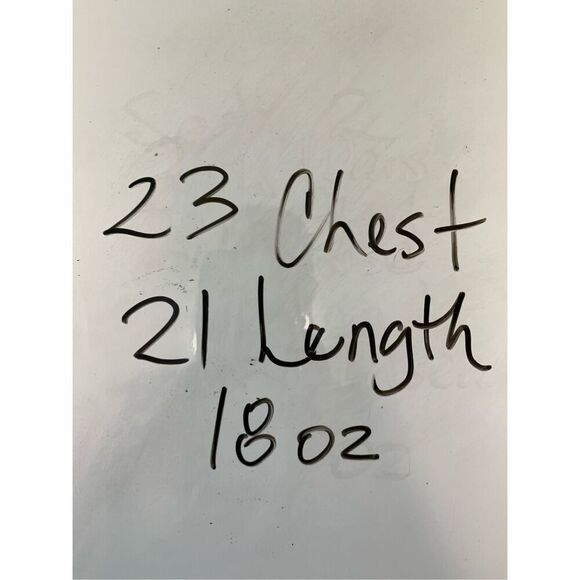 23 Chest
21 Length
18 oz